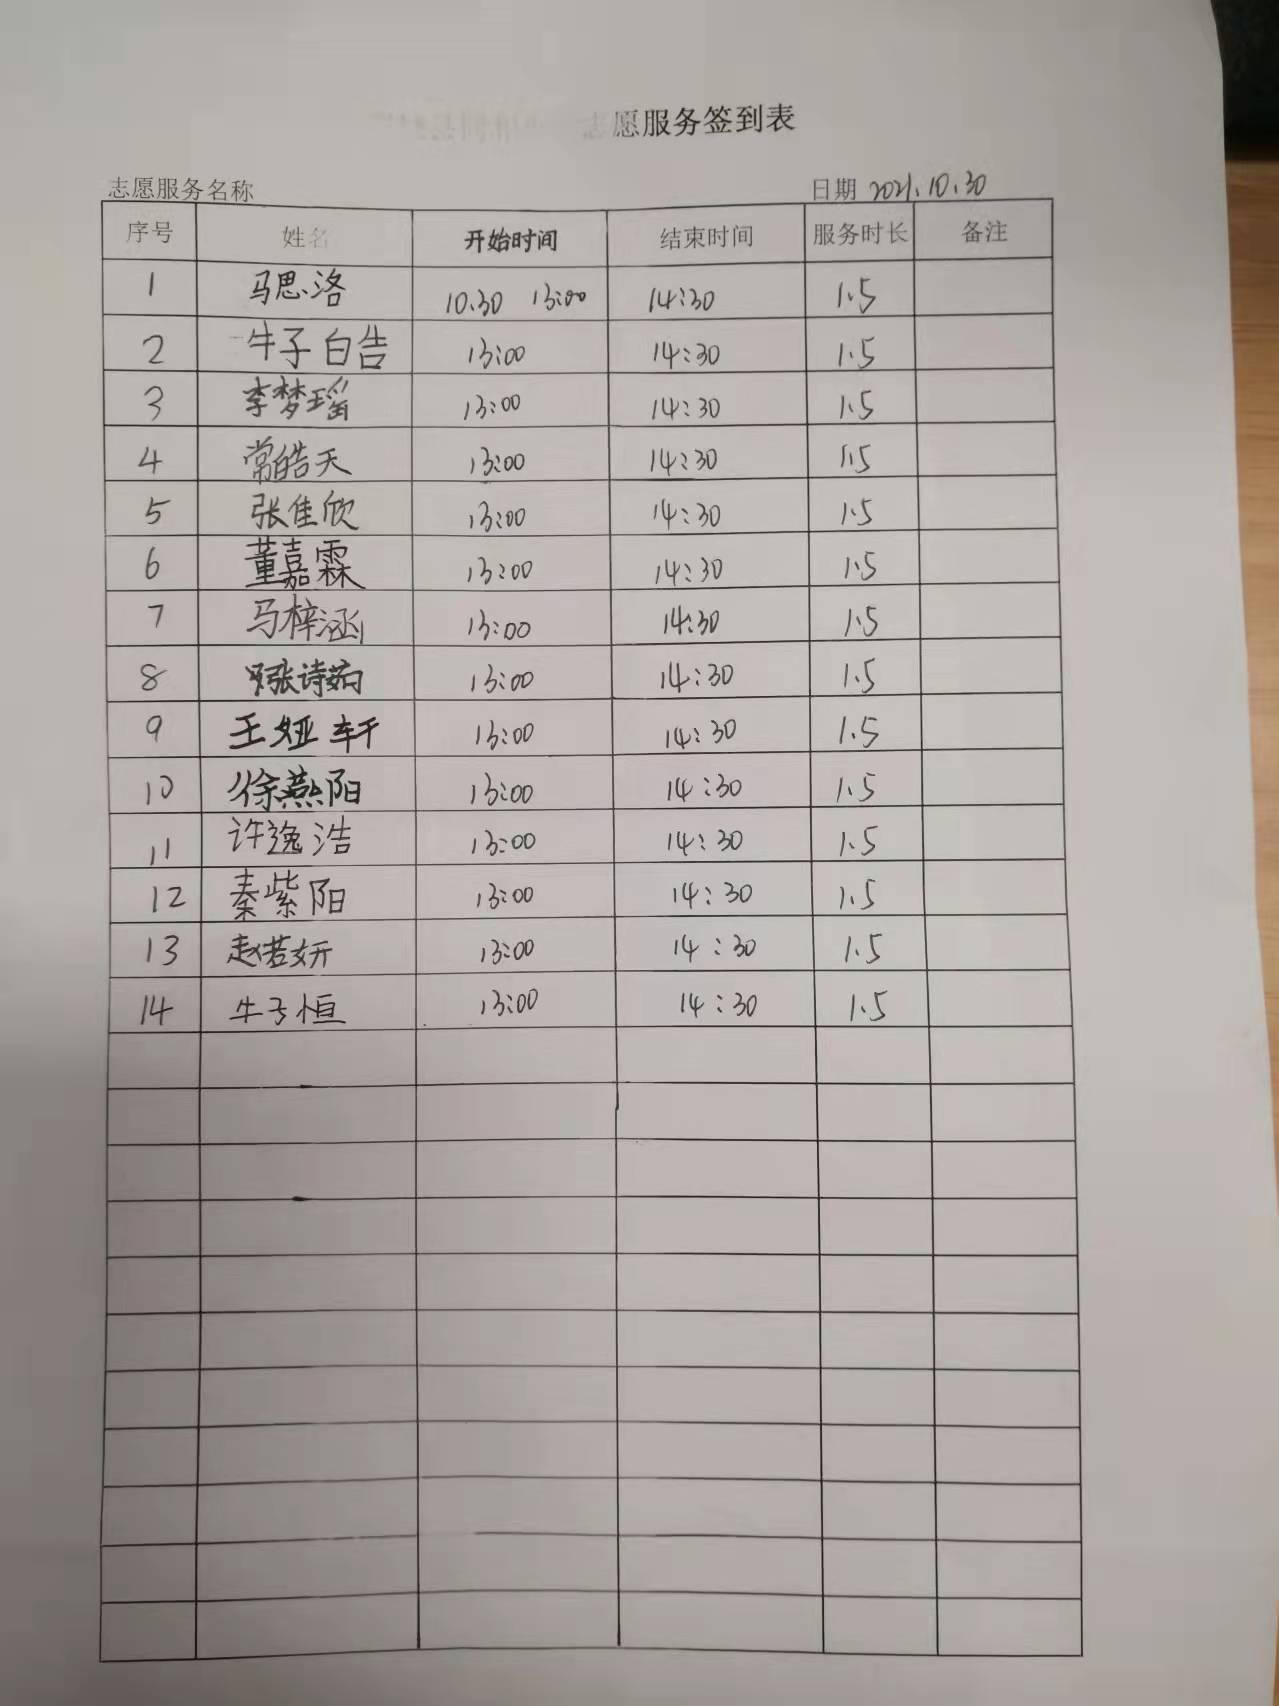 志愿服务签到表
志愿服务名称 日期 2021.10.30
序号 姓名 开始时间 结束时间 服务时长 备注
1 马思洛 10.30 13:00 14:30 1.5
2 牛子皓 13:00 14:30 1.5
3 李梦瑶 13:00 14:30 1.5
4 常皓天 13:00 14:30 1.5
5 张佳欣 13:00 14:30 1.5
6 董嘉霖 13:00 14:30 1.5
7 马梓涵 13:00 14:30 1.5
8 张诗茹 13:00 14:30 1.5
9 王娅轩 13:00 14:30 1.5
10 徐燕阳 13:00 14:30 1.5
11 许逸浩 13:00 14:30 1.5
12 秦紫阳 13:00 14:30 1.5
13 赵若妍 13:00 14:30 1.5
14 牛子恒 13:00 14:30 1.5